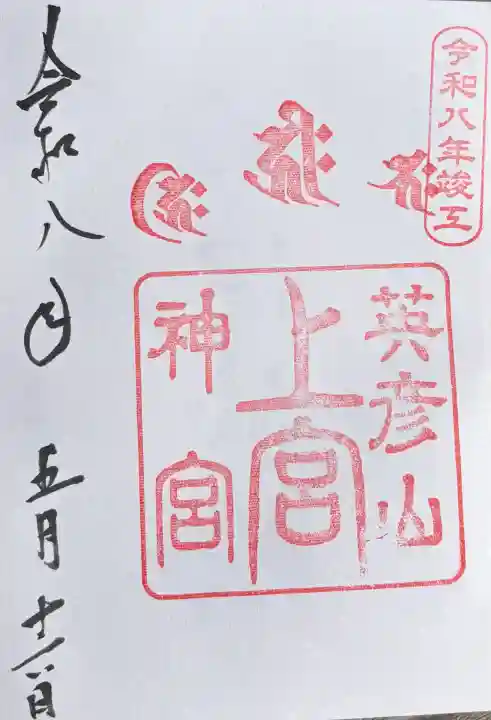 令和八年竣工
英彦山
上宮
神宮
令和八年 五月十六日